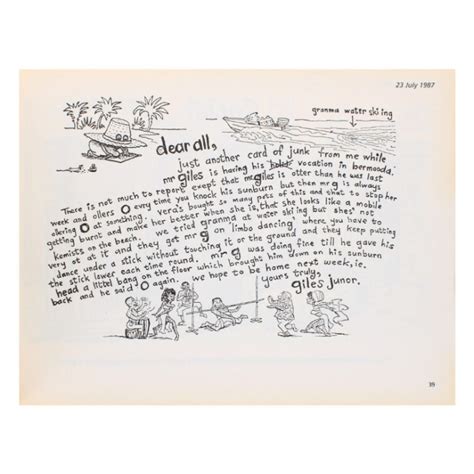 23 July 1987
granma water skiing
dear all,
just another card of junk from me while
mr giles is having his vocation in bermooda.
There is not much to report exept that mr giles is otter than he was last
week and ollers O every time you knock his sunburn but then mr g is always
okring O at something. vera's bought so many pets of this and that to stop
getting burnt and make her better when she is, that she looks like a mobile
kemists on the beach. we tried granma at water ski ing but shes not
very at it and they got mr g on limbo dancing where you have to
dance under a stick without touching it or the ground and they keep putting
the stick lower each time round. mr g was doing fine till he gave his
head a littel bang on the floor which brought him down on his sunburn
back and he said O again. we hope to be home next week, ie.
yours truly,
giles junor.
39